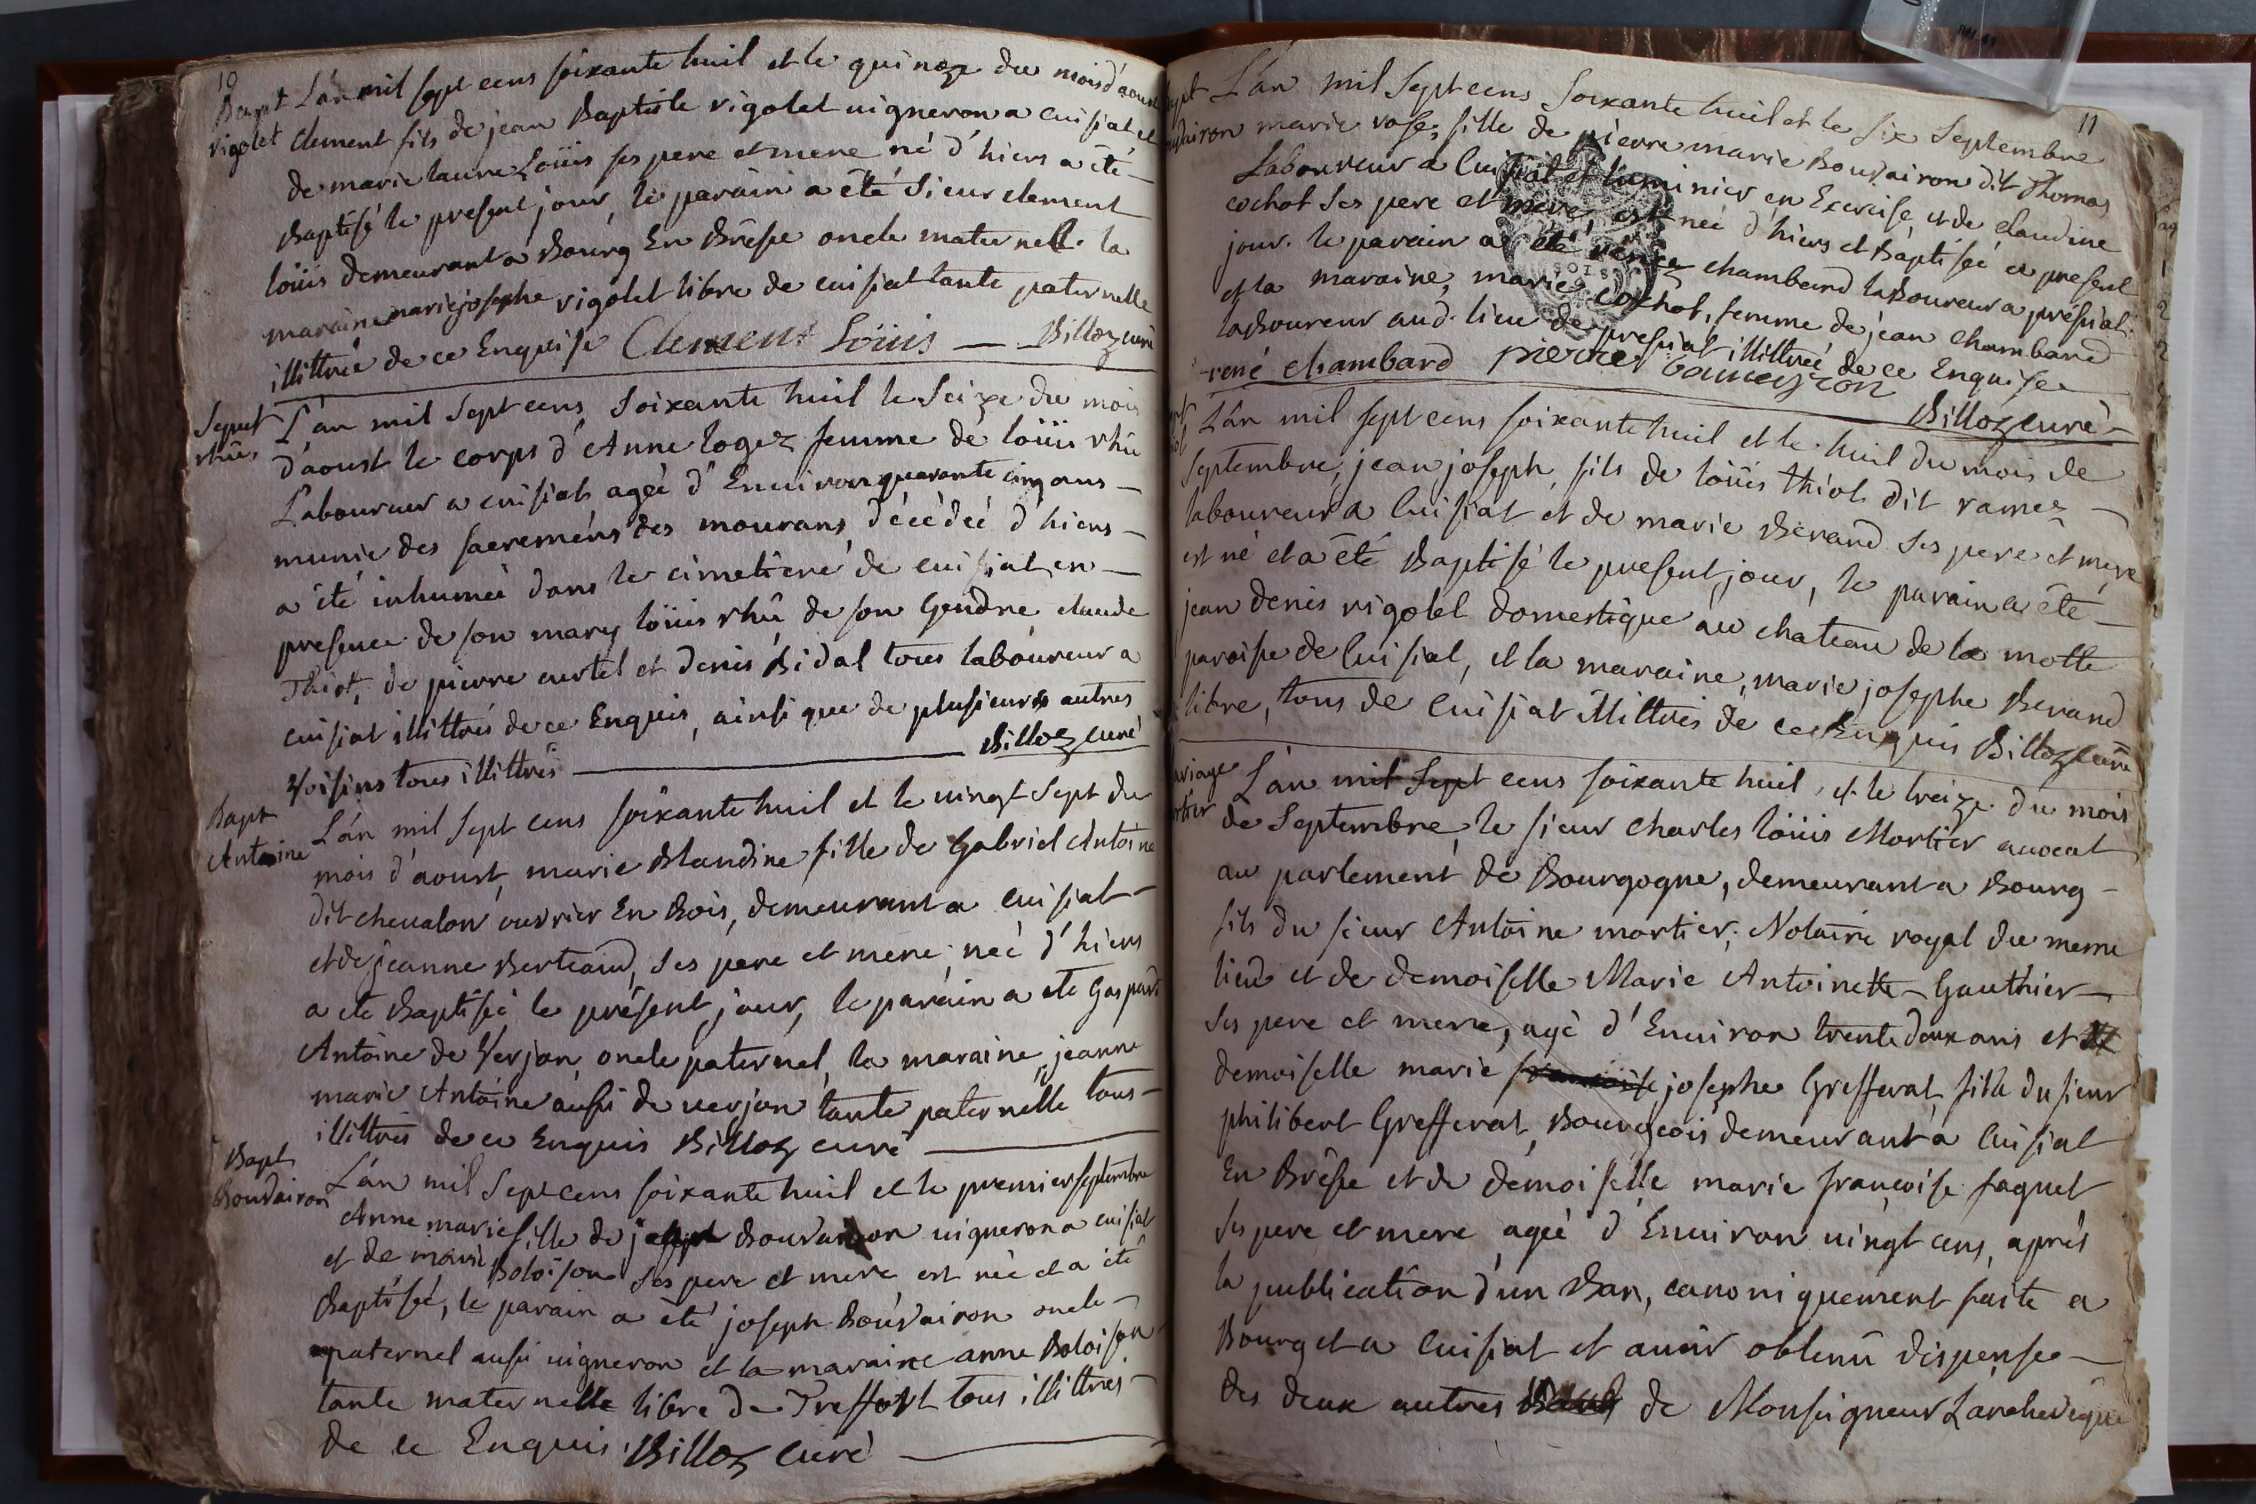 10
Bapt L'an mil sept cens soixante huit et le quinze du mois d'aoust
rigolet clement fils de jean Baptiste rigolet uigneron a cuisiat et
de marie laure Loüis ses pere et mere né d'hiers a été
Baptisé le present jour, le parain a été Sieur clement
loüis demeurant a Bourg En Brêsse oncle maternel. la
maraine marie josephe rigolet libre de cuisiat tante paternelle
illittrée de ce Enquise Clement Loüis Billoz curé
Sepult L'an mil sept cens soixante huit le Seize du mois
rhû d'aoust le corps d'Anne logez femme de loüis rhû
Laboureur a cuisiat agée d'Enuiron quarante cinq ans
munie des sacremens des mourans, décédée d'hiers
a été inhumée dans le cimetiere de cuisiat en
presence de son mary loüis rhû de son Gendre claude
Thiot, de pierre curtel et denis Bidal tous laboureur a
cuisiat illittrés de ce Enquis, ainsi que de plusieurs autres
Voisins tous illittrés Billoz curé
Bapt L'an mil Sept cens soixante huit et le uingt sept du
Antoine mois d'aoust, marie Blandine fille de Gabriel Antoine
dit cheualon ouvrier En Bois, demeurant a cuisiat
et de jeanne Berteaud, ses pere et mere, née d'hiers
a ete Baptisée le présent jour, le parain a ete Gaspard
Antoine de Verjon, oncle paternel, la maraine jeanne
marie Antoine aussi de uerjon tante paternelle tous
illittrés de ce Enquis Billoz curé
Bapt L'an mil Sept cens soixante huit et le premier septembre
Bouvairon Anne marie fille de Bouvairon uigneron a cuisiat
et de marie Boloison ses pere et mere est née et a été
Baptisée, le parain a été joseph Bouvairon oncle
paternel aussi uigneron et la maraine anne Boloison
tante maternelle libre de Treffort tous illittrés
de ce Enquis Billoz curé
11
L'an mil Sept cens Soixante huit et le six Septembre
marie rose, fille de pierre marie Bouvairon dit Thomas
Laboureur a Cuisiat et luminier en Exercise, et de claudine
cochet ses pere et mere est née d'hiers et Baptisée ce present
jour. le parain a été rené chambard laboureur a présiat.
et la maraine, marie cochot, femme de jean chambard
laboureur aud. lieu de presiat illittrée de ce Enquise
rené chambard pierre Bouveyron
Billoz curé
L'an mil sept cens soixante huit et le huit du mois de
Septembre, jean joseph, fils de loüis thiot dit ramez
laboureur a Cuisiat et de marie Berard ses pere et mere
est né et a été Baptisé le present jour, le parain a été
jean denis rigolet domestique au chateau de la motte
paroisse de Cuisiat, et la maraine, marie josephe Berard
libre, tous de Cuisiat illittrés de ce Enquis Billoz curé
L'an mil Sept cens soixante huit, et le treize du mois
de Septembre, le sieur charles loüis Mortier auocat
au parlement de Bourgogne, demeurant a Bourg
fils du sieur Antoine mortier, Notaire royal du meme
lieu et de demoiselle Marie Antoinette Gauthier
ses pere et mere, agé d'Enuiron trente deux ans et
demoiselle marie françoise josephe Grefferat, fille du sieur
philibert Grefferat, Bourgeois demeurant a Cuisiat
En Brêsse et de demoiselle marie françoise faguet
ses pere et mere agée d'Enuiron uingt ans, aprés
la publication d'un Ban, canoniquement faite a
Bourg et a Cuisiat et auoir obtenû dispense
des deux autres de Monseigneur L'archeuêque